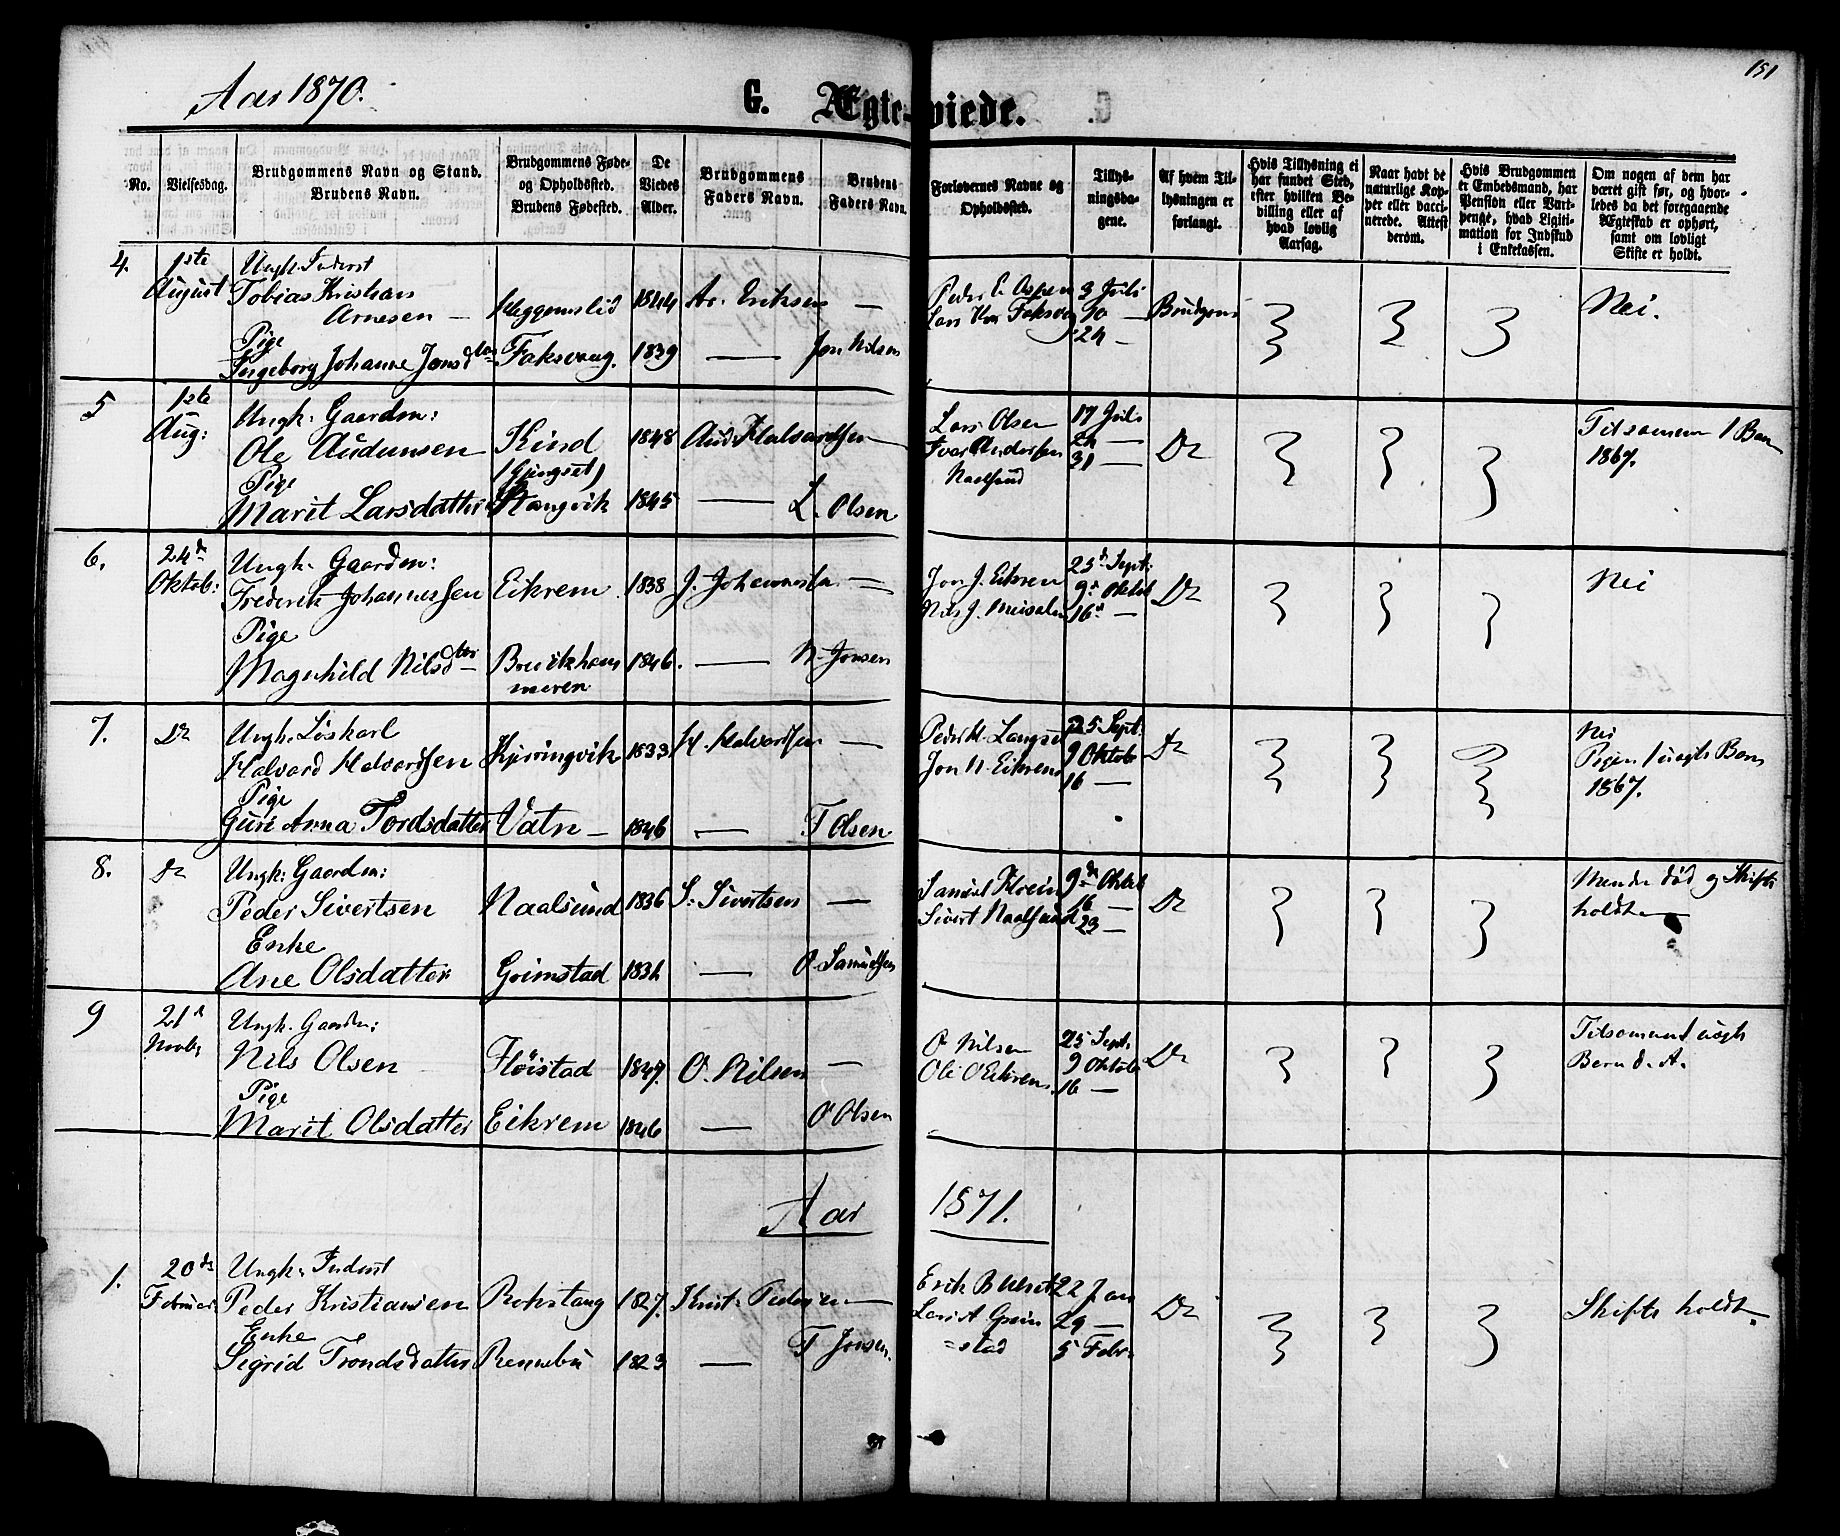 151
Aar 1870.
G. Ægte-viede.
No.
Vielsesdag.
Brudgommens Navn og Stand.
Brudens Navn.
Brudgommens Føde-
og Opholdssted.
Brudens Fødested.
De
Viedes
Alder.
Brudgommens
Faders Navn.
Brudens
Faders Navn.
Forlovernes Navne og
Opholdssted.
Tillys-
ningsda-
gene.
Af hvem Til-
lysningen er
forlangt.
Hvis Tillysning ei
har fundet Sted,
efter hvilken Be-
villing eller af
hvad lovlig
Aarsag.
Naar havt de
naturlige Kop-
per eller vacci-
nerede. Attest
derom.
Hvis Brudgommen
er Embedsmand, har
Pension eller Vart-
penge, hvad Ligiti-
mation for Indskud
i Enkekassen.
Om nogen af dem har
været gift før, og hvor-
ledes da det foregaaende
Ægteskab er ophørt,
samt om lovligt
Skifte er holdt.
4. 1ste August
Ungk. Inderst
Tobias Kristian
Arnesen — Heggemslid 1844 Ar. Eriksen —
Pige
Ingeborg Johanne Jonsdtter Faksvaag. 1839 — Jon Nilsen
Peder E. Aspen 3 Juli
Lars Faksvaag 10 —
24 —
Brudgom
Nei.
5 1ste Aug:
Ungk. Gaardm:
Ole Audunsen Kind 1848 Aud. Halvardsen —
(Gjengset)
Pige
Marit Larsdatter Stangvik 1845 — L. Olsen
Lars Olsen 17 Juli
Ivar Andersen 24 —
Naalsund 31 —
Do
Tilsammen 1 Barn
1867.
6. 24de Oktob:
Ungk. Gaardm:
Frederik Johannessen Eikrem 1838 J. Johannesen —
Pige
Magnhild Nilsdtter Brevikhans 1846. — N. Jonsen
meren
Jon J. Eikrem 25de Sept:
Nils J. Meisalen 9de Oktob
16de —
Do
Nei
7. Do
Ungk. Løskarl
Halvard Halvardsen Kjøringvik 1833 H. Halvardsen —
Pige
Guri Anna Tordsdatter Vatn — 1846 — T Olsen
Peder K. Langset 25 Sept.
Jon N. Eikrem 9 Oktob
16 —
Do
Nei
Pigen 1 uægte Barn
1867.
8. Do
Ungk: Gaardm:
Peder Sivertsen Naalsund 1836 S. Sivertsen —
Enke
Ane Olsdatter Grimstad 1831 — O. Samuelsen
Samuel 9de Oktob
Sivert Naalsund 16 —
23 —
Do
Manden død og Skifte
holdt —
9 21de Novbr
Ungk. Gaardm:
Nils Olsen Fløistad 1847. O. Nilsen —
Pige
Marit Olsdatter Eikrem 1846 — O Olsen
O Nilsen 25 Sept.
Ole O Eikrem 9 Oktob
16 —
Do
Tilsammen 1 uægte
Barn d. A.
Aar 1871.
1. 20de Februar
Ungk. Inderst
Peder Kristiansen Rokstang 1827. Krist. Pedersen —
Enke
Sigrid Trondsdatter Rennebu 1823 — T Jonsen.
Erik B Ulset 22 Jan
Lars A Grim 29 —
=stad 5 Febr.
Do
Skifte holdt.